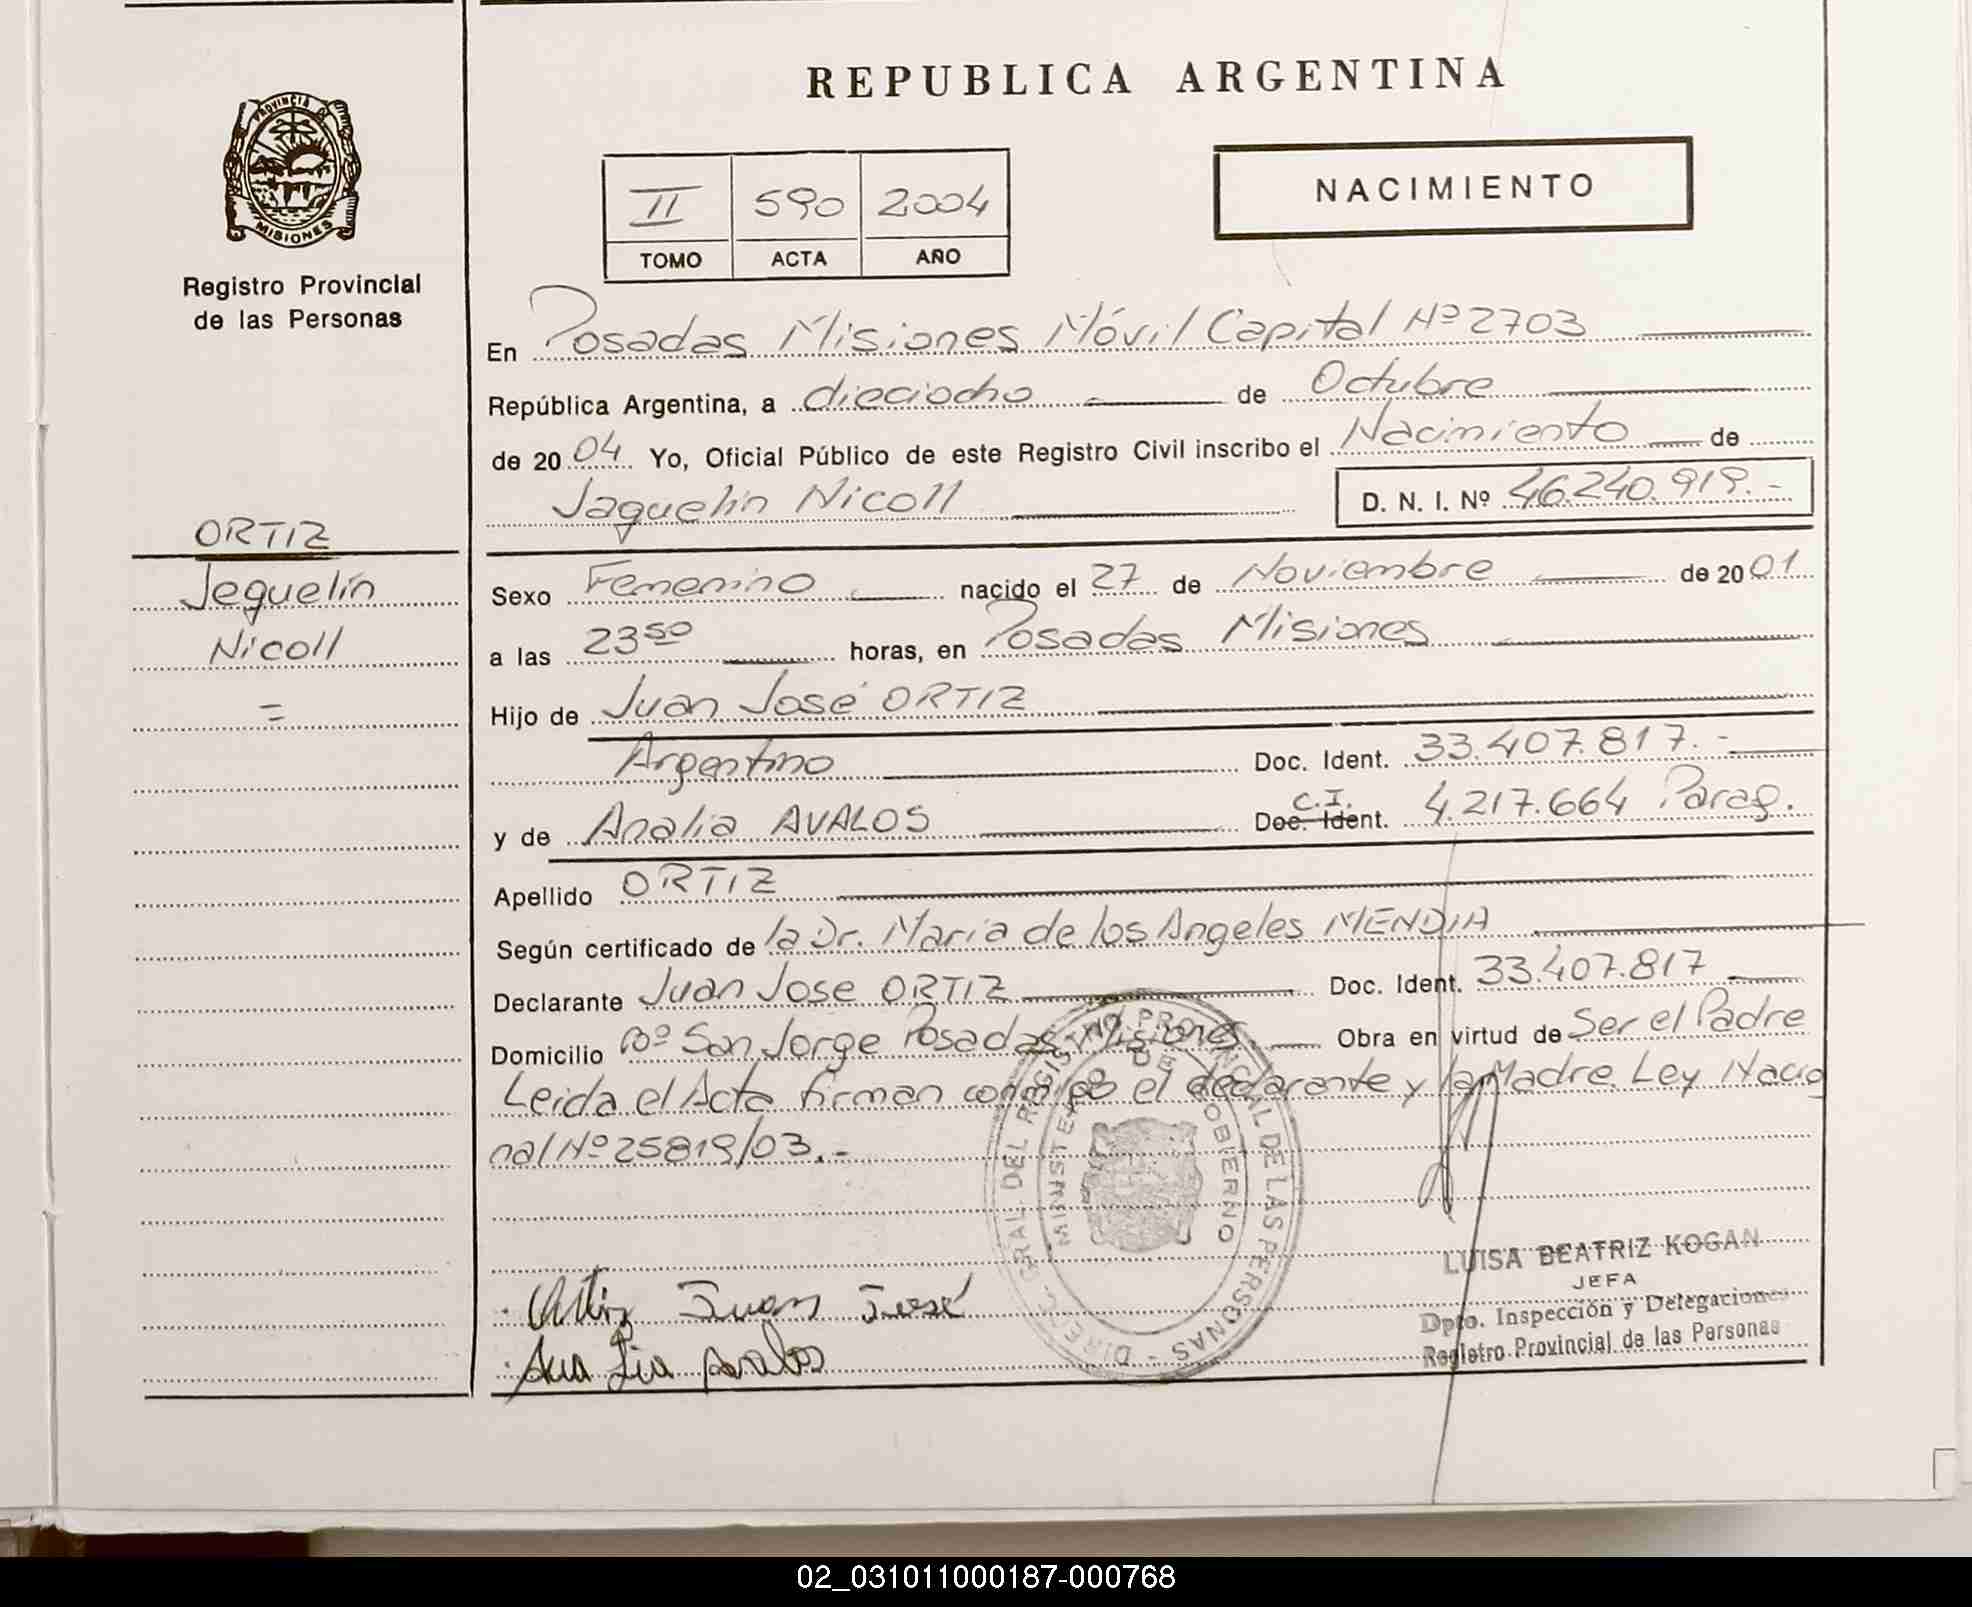 REPUBLICA ARGENTINA
PROVINCIA DE
MISIONES
Registro Provincial
de las Personas
II 590 2004
TOMO ACTA AÑO
NACIMIENTO
En Posadas Misiones Móvil Capital Nº 2703
República Argentina, a dieciocho de Octubre
de 2004 Yo, Oficial Público de este Registro Civil inscribo el Nacimiento de
Jaquelín Nicoll D. N. I. Nº 46.240.919.-
ORTIZ
Jequelín
Nicoll
=
Sexo Femenino nacido el 27 de Noviembre de 2001
a las 23 50 horas, en Posadas Misiones
Hijo de Juan José ORTIZ
Argentino Doc. Ident. 33.407.817.-
y de Analia AVALOS C.I. Doc. Ident. 4.217.664 Parag.
Apellido ORTIZ
Según certificado de la Dr. María de los Angeles MENDIA
Declarante Juan Jose ORTIZ Doc. Ident. 33.407.817
Domicilio Bº San Jorge Posadas Misiones. Obra en virtud de Ser el Padre
Leida el Acta firman conmigo el declarante y la Madre. Ley Nacio
nal Nº 25819/03.-
DIREC. GRAL. DEL REGISTRO PROVINCIAL DE LAS PERSONAS -
MINISTERIO DE GOBIERNO
LUISA BEATRIZ KOGAN
JEFA
Dpto. Inspección y Delegaciones
Registro Provincial de las Personas
Ortiz Juan José
Ana Lia Avalos
02_031011000187-000768